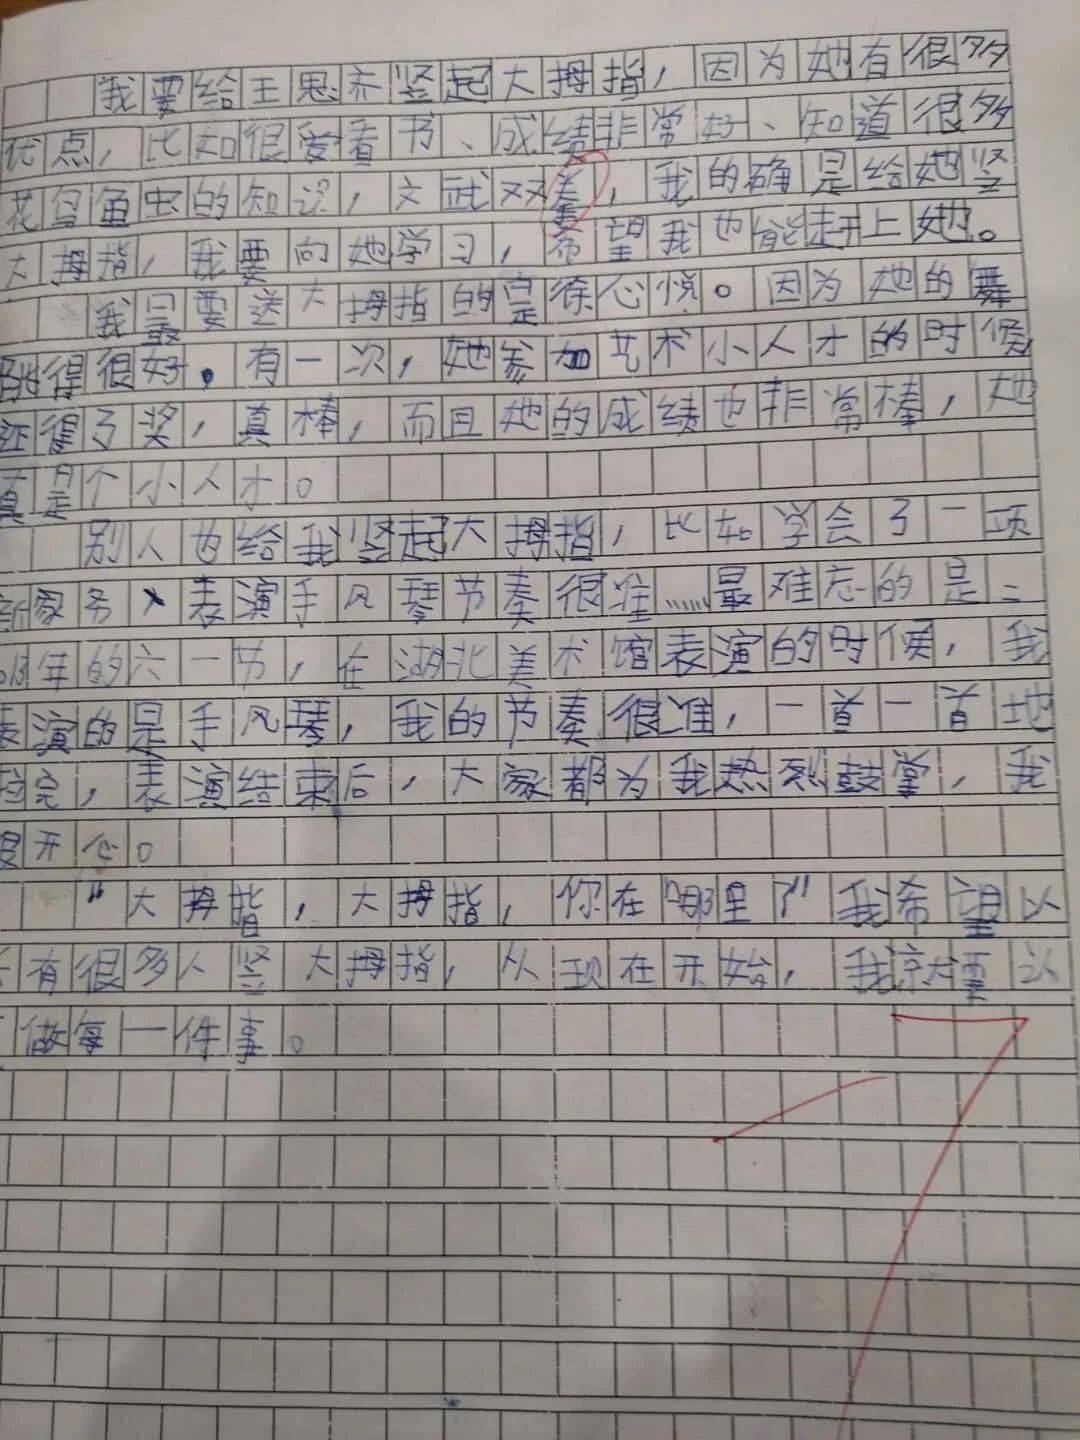 我要给王思亦竖起大拇指，因为她有很多
优点，比如很爱看书、成绩非常好、知道很多
花鸟鱼虫的知识，文武双差，我的确是给她竖
大拇指，我要向她学习，希望我也能赶上她。
我最要送大拇指的是徐心悦。因为她的舞
跳得很好。有一次，她参加艺术小人才的时候
还得了奖，真棒，而且她的成绩也非常棒，她
真是个小人才。
别人也给我竖起大拇指，比如学会了一项
新家务、表演手风琴节奏很准……最难忘的是二
年的六一节，在湖北美术馆表演的时候，我
表演的是手风琴，我的节奏很准，一首一首地
完，表演结束后，大家都为我热烈鼓掌，我
很开心。
“大拇指，大拇指，你在哪里？”我希望以
有很多人竖大拇指，从现在开始，我就要认
做每一件事。